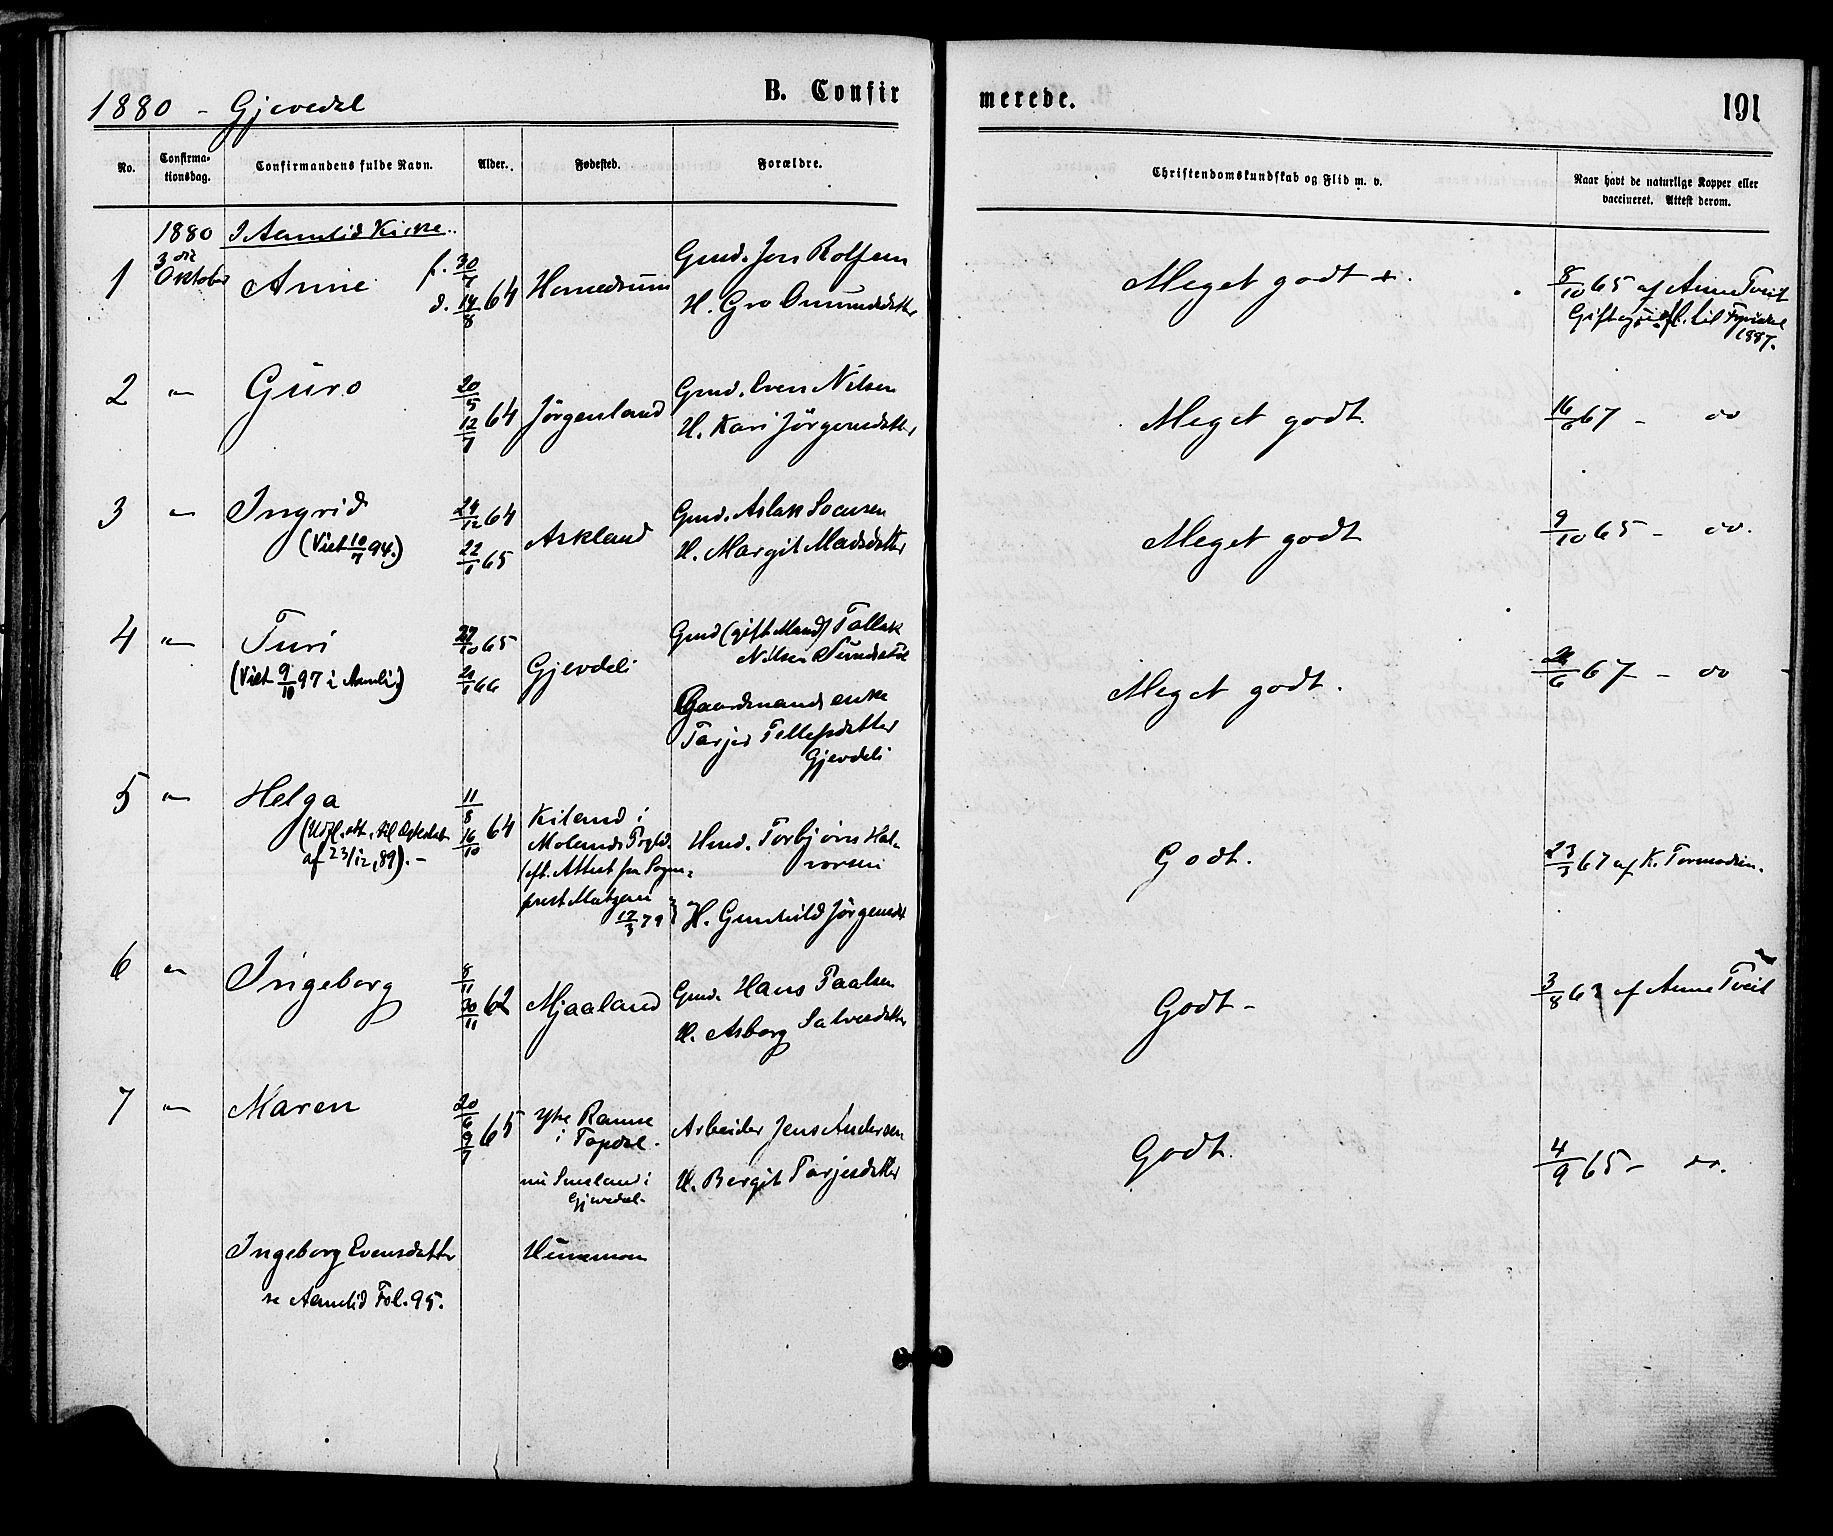 1880 - Gjevedal
B. Confirmerede.
191
No.
Confirma-
tionsdag.
Confirmandens fulde Navn.
Alder.
Fødested.
Forældre.
Christendomskundskab og Flid m. v.
Naar havt de naturlige Kopper eller
vaccineret. Attest derom.
1880
I Aamlid Kirke.
3die
Oktober
1
Anne
f. 30/7
d. 14/8 64
Gmd. Jon Rolfsen
H. Gro Omundsdatter
Meget godt +.
8/10 65 af Anne Tveit
1887.
2
"
Guro
20/5
12/7 64
Jörgenland
Gmd. Even Nilsen
H. Kari Jörgensdatter
Meget godt.
16/6 67 - do
3
"
Ingrid
(Viet 10/7 94.)
24/12 64
22/1 65
Askland
Gmd. Aslak
H. Margit Madsdatter
Meget godt
9/10 65 - do.
4
"
Turi
(Viet 9/10 97 i Aamli.)
27/10 65
21/1 66
Gjevdeli
Gmd (gift Mand) Tallak
Nilsen
Gaardmandsenke
Tarjer Tellefsdatter
Gjevdeli
Meget godt.
/6 67 - do
5
"
Helga
(Udfl. att. til
af 23/12, 89). -
11/8
16/10 64
Kiland i
Molands Prgld.
(eft. Attest fra Sogne-
prest
12/3 79
Hmd. Torbjörn Hal-
vorsen
H. Gunhild Jörgensd.
Godt.
23/3 67 af K. Tormodsen.
6
"
Ingeborg
8/11
30/11 62
Mjaaland
Gmd. Hans Paalsen
H. Asborg Salvesdatter
Godt -
3/8 63 af Anne Tveit
7
"
Maren
20/6
9/7 65
Ytre Ramse
i Topdal.
nu Smeland i
Gjevedal.
Arbeider Jens Andersen
H. Bergit Tarjesdatter
Godt.
4/9 65 - do.
Ingeborg Evensdatter
Hunemoen
se Aamlid Fol. 95.